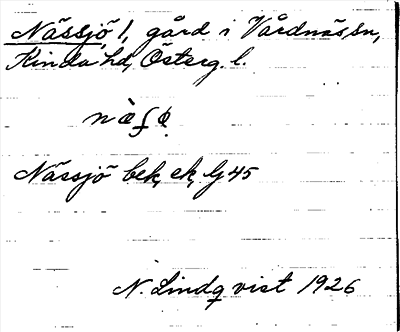 Nässjö 1, gård i Vårdnäs sn,
Kinda hd, Österg. l.
Nässjö bek, ek, Gj 45
N. Lindqvist 1926